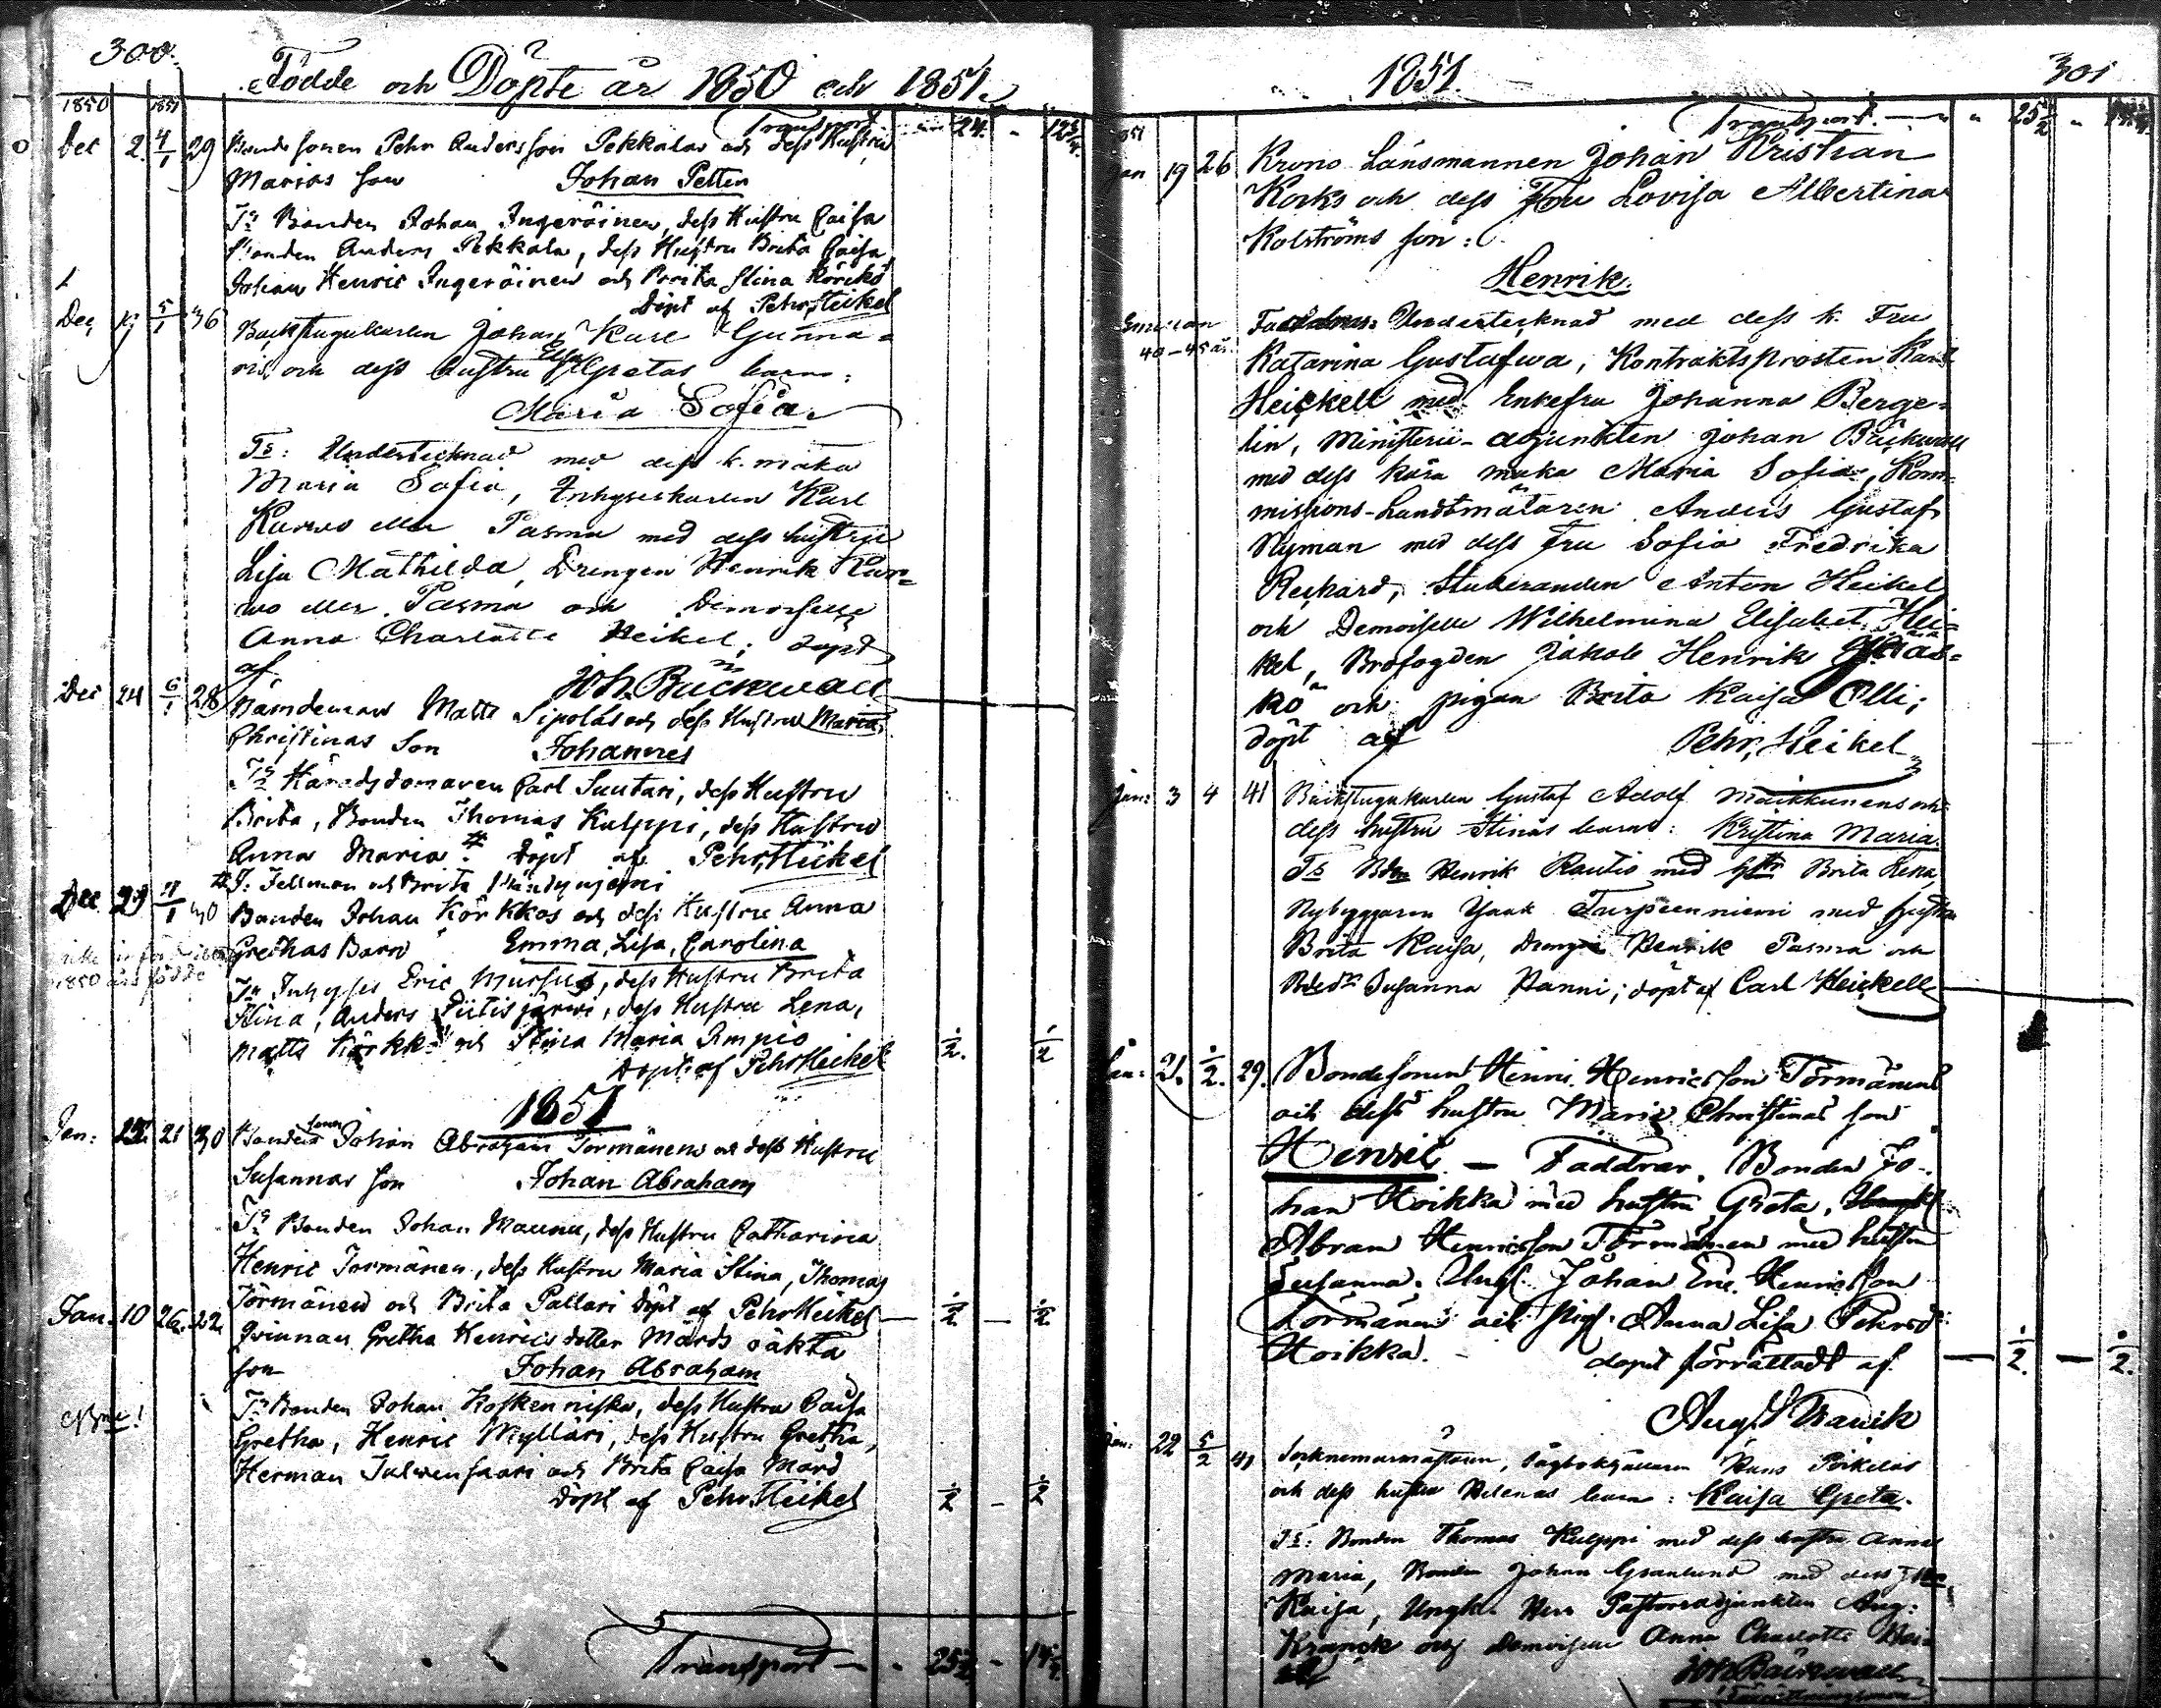 300.
Födde och Döpte år 1850 och 1851.
1850 1851
Transport 24. 12 3/4.
Dec 2. 4/1 29 Bondesonen Pehr Andersson Pekkalas och dess Hustru
Marias son Johan Petter
Ts Bonden Johan Ingeröinen, dess Hustru Caisa
Bonden Anders Pekkala, dess Hustru Brita Caisa,
Johan Henric Ingeröinen och Brita Stina Körkö
Döpt af Pehr Heikel
Dec 5/1 36 Backstugukarlen Johan Karl Gunna-
ris och dess hustru Elsa Gretas barn:
Maria Sofia
Ts: Undertecknad med dess k. maka
Maria Sofia, Inhyseskarlen Karl
Kurwo eller Pasma med dess hustru
Lisa Mathilda, Drengen Henrik Kur-
wo eller Pasma och Demoiselle
Anna Charlotte Heikel; döpt
af Joh. Bäckwall
Dec 24 6/1 28 Nämdeman Matts Sipolas och dess Hustru Maria
Christinas Son Johannes
Ts Häradsdomaren Carl Suutari, dess Hustru
Brita, Bonden Thomas Kulppi, dess Hustru
Anna Maria # Döpt af Pehr Heikel
# J. Fellman och Brita
Dec 29 11/1 40 Bonden Johan Körkkös och dess Hustru Anna
Grethas Barn Emma, Lisa, Carolina
1850 års födde
Ts Inhyses Eric Mursus, dess Hustru Brita
Stina, Anders Siitisjärwi, dess Hustru Lena,
Matts Körkkö och Stina Maria Ampio
Döpt af Pehr Heikel 1/2. 1/2
1851
Jan: 21 30 Bondesonen Johan Abraham Törmänens och dess Hustru
Susannas son Johan Abraham
Ts Bonden Johan Maunu, dess Hustru Catharina
Henric Törmänen, dess Hustru Maria Stina, Thomas
Törmänen och Brita Pallari döpt af Pehr Heikel 1/2 - 1/2
Jan. 10 26. 22 Qvinnan Gretha Henricsdotter Mårds oäkta
son Johan Abraham
Ts Bonden Johan Koskenniska, dess Hustru Caisa
Gretha, Henric Mylläri, dess Hustru Gretha,
Herman Julwensaari och Brita Caisa Mård
Döpt af Pehr Heikel 1/2 - 1/2
Transport - 25 1/2 - 14 1/4.
1851. 301
1851 Transport. 25 1/2
Jan 19 26 Krono Länsmannen Johan Kristian
Korks och dess Fru Lovisa Albertina
Kolströms son:
Henrik.
40-45 år. Faddrar: Undertecknad med dess k. Fru
Katarina Gustafwa, Kontraktsprosten Karl
Heickell med Enkefru Johanna Berge-
lin, Ministerii-adjunkten Johan Bäckwall
med dess kära maka Maria Sofia, Kom-
missions-Landtmätaren Anders Gustaf
Nyman med dess Fru Sofia Fredrika
Reckard, Studeranden Anton Heikel
och Demoiselle Wilhelmina Elisabet Hei-
kel, Brofogden Jakob Henrik
kö och pigan Brita Kaisa Olli;
döpt af Pehr Heikel
Jan: 3 4 41 Backstugukarlen Gustaf Adolf Maikkunens och
dess hustru Stinas barn: Kristina Maria.
Ts Bden Henrik Rautio med hstr Brita Lena,
Nybyggaren Isaak Turpeenniemi med hustru
Brita Kaisa, Drengen Henrik Pasma och
Susanna Hanni; döpt af Carl Heickell
Jan: 21. 1/2. 29. Bondesonen Henric Henricsson Törmänens
och dess hustru Maria Christinas son
Henric. - Faddrar. Bonden Jo-
han Hoikka med hustru Greta,
Abram Henricsson Törmänen med hustru
Susanna. Ungk. Johan Eric Henricsson
Törmänen och pig. Anna Lisa Pehrsd:
Hoikka. - döpet förrättadt af 1/2. - 1/2.
Aug. Kranck
Jan: 22 5/2 41 Socknemarmästaren, Hans Peikilas
och dess hustru Helenas barn: Kaisa Greta.
Ts: Bonden Thomas Kulppi med dess hustru Anna
Maria, Bonden Johan Granlund med dess
Kaisa, Ungk. Herr Pastorsadjunkten Aug:
Kranck och Demoiselle Anna Charlotte Hei-
kel Joh Bäckwall